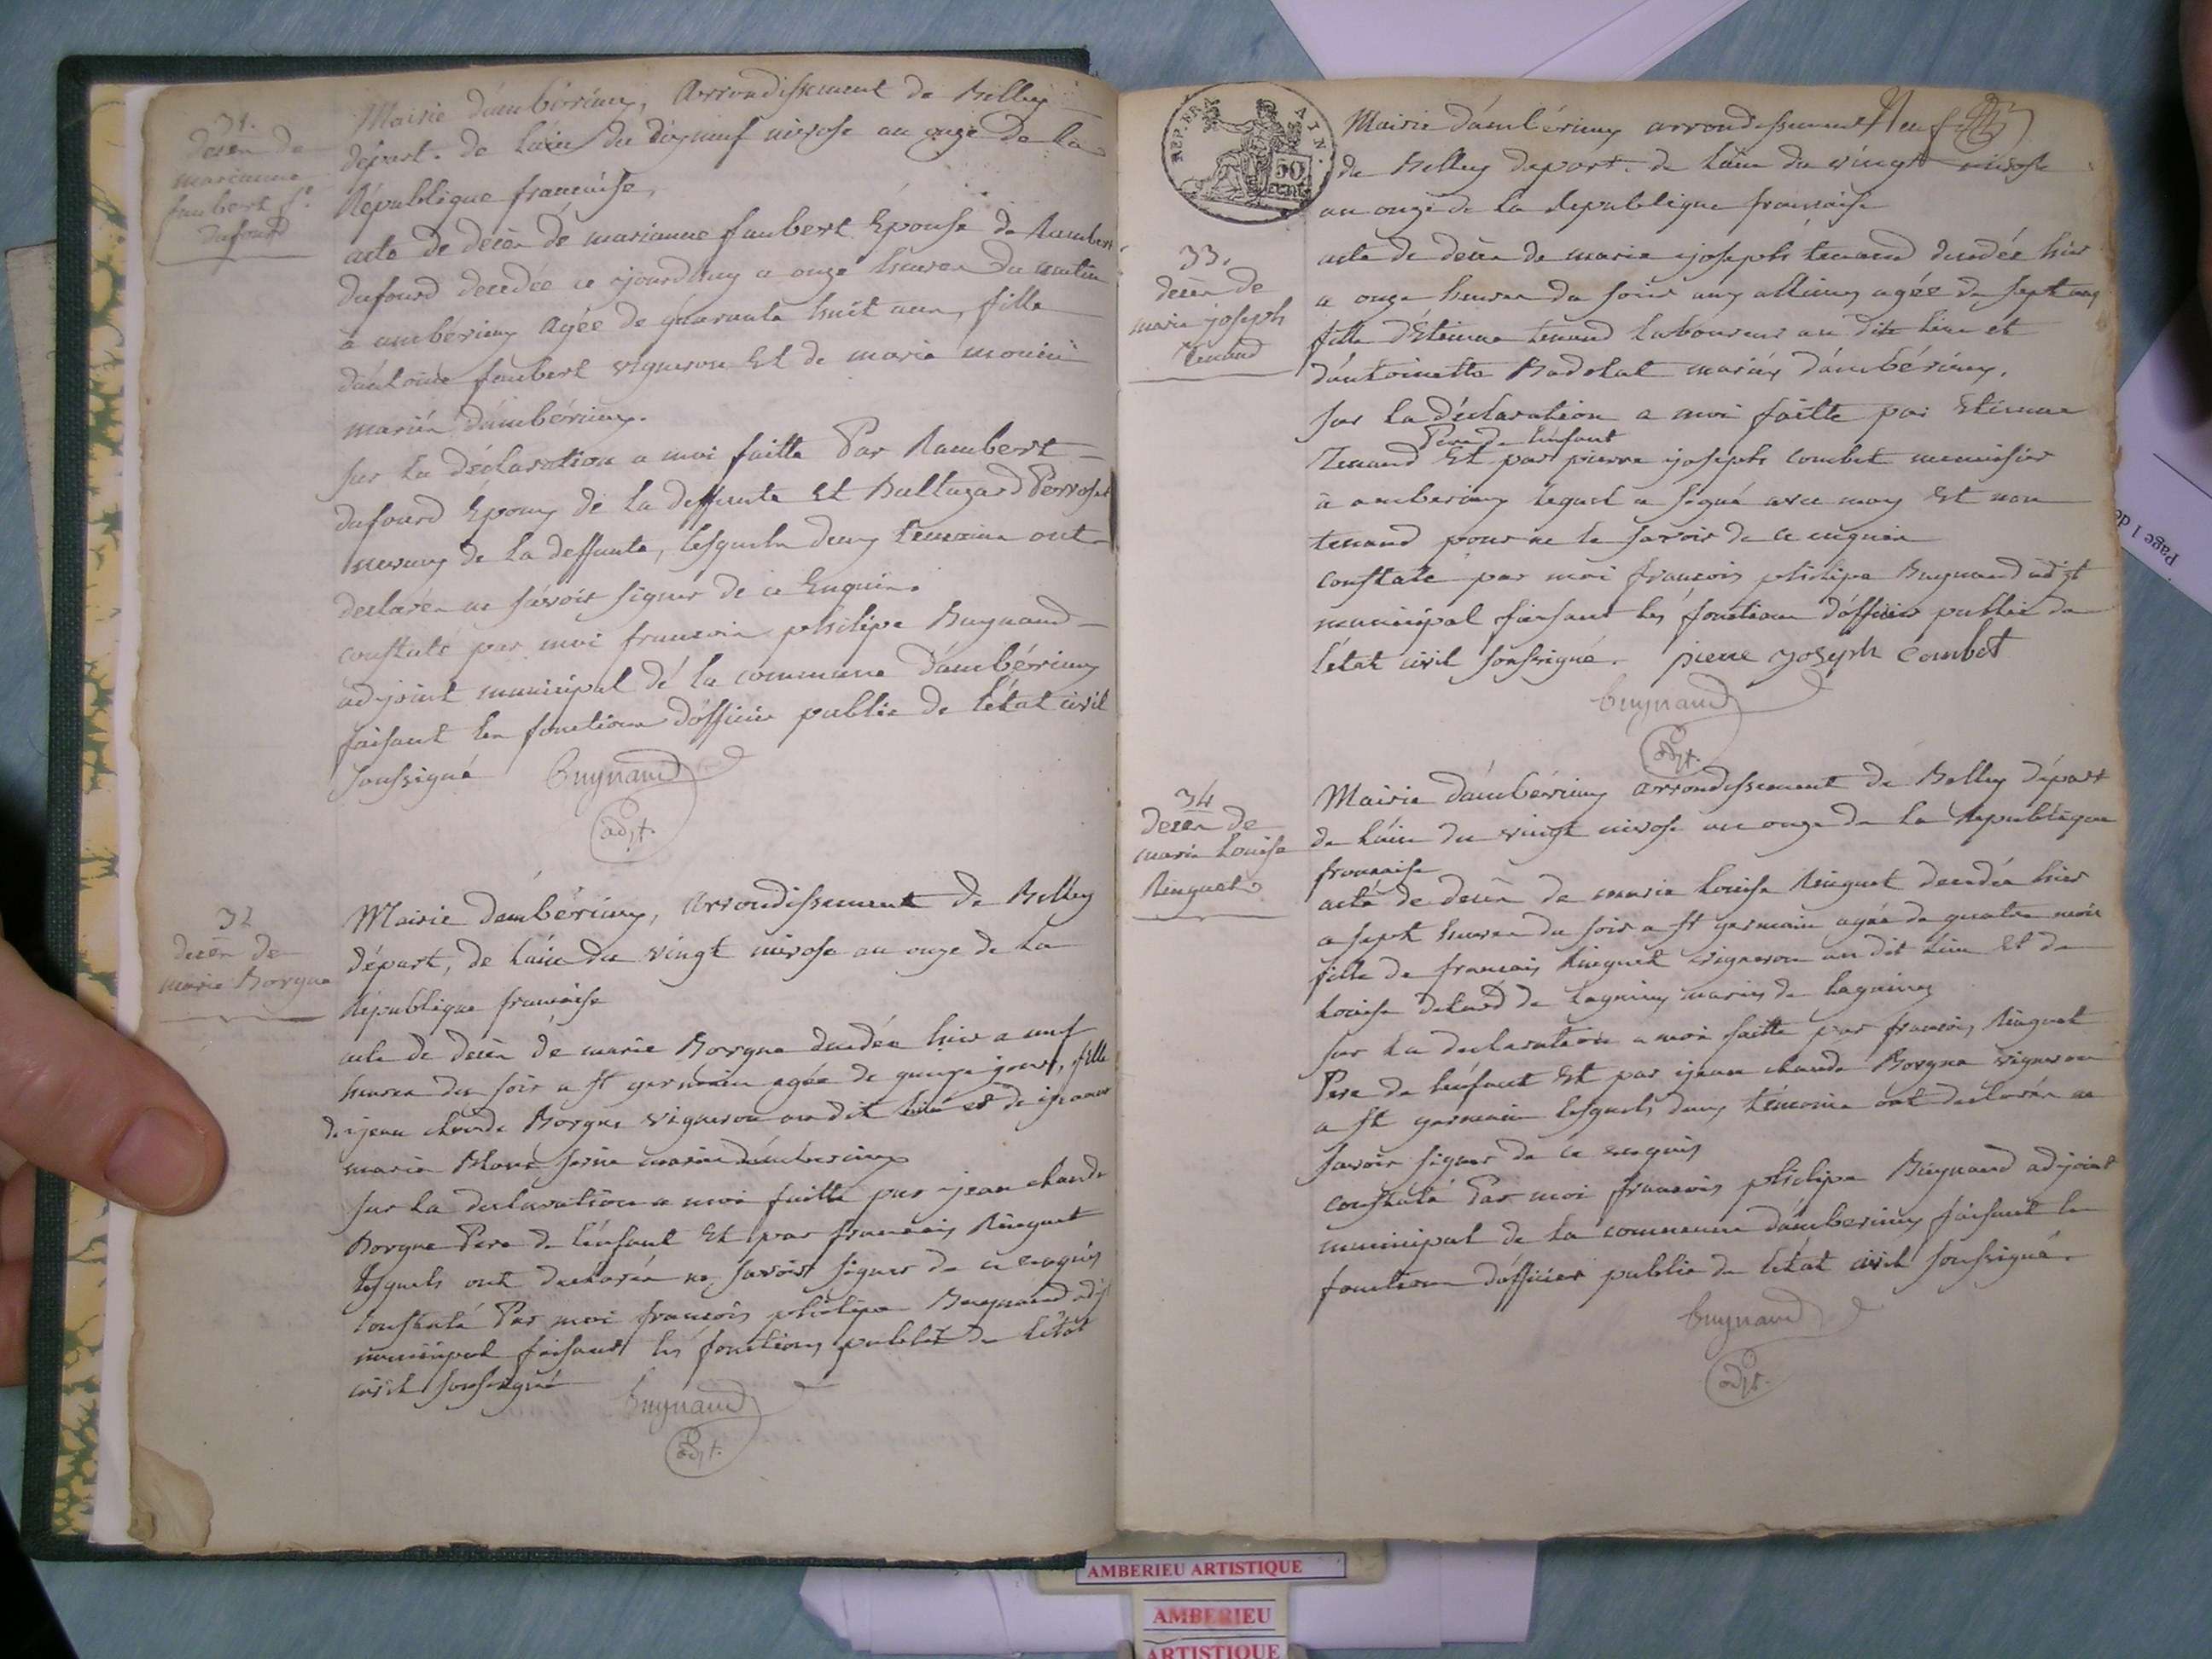 31.
decès de
marianne
faubert f.e
dufourd
Mairie d'ambérieux, Arrondissement de Belley
départ. de l'ain du dixneuf nivose an onze de la
République française,
acte de décès de marianne faubert Epouse de Rambert
dufourd decedée ce ajourdhuy a onze heures du matin
à ambérieux agée de quarante huit ans, fille
d'antoine faubert vigneron Et de marie
mariés d'ambérieux.
sur la déclaration a moi faitte Par Rambert
dufourd Epoux de la deffunte Et Baltazard
neveux de la deffunte, lesquels deux temoins ont
declarés ne savoir signer de ce Enquis.
constaté par moi francois philipe Buynand
adjoint municipal dé la commune d'ambérieux
faisant les fonctions d'officier public de l'état civil
soussigné Buynand
adjt.
32
decès de
marie Borgne
Mairie d'ambérieux, arrondissement de Belley
départ, de l'ain du vingt nivose an onze de la
République française
acte de decès de marie Borgne decedée hier a neuf
heures du soir a st germain agée de quinze jours, fille
de jean claude Borgne vigneron au dit lieu et de
marie mariés d'ambérieux
sur la declaration a moi faitte par jean claude
Borgne Pere de l'enfant Et par francois Ringuet
lesquels ont declarés ne savoir signer de ce enquis
Constaté Par moi françois philipe Buynand adjt
municipal faisant les fonctions publiet de l'état
civil soussigné
Buynand
adjt.
REP. FRA. AIN.
50
CENT.
neuf
Mairie d'ambérieux arrondissement
de Belley depart. de l'ain du vingt nivose
an onze de la Republique francaise
33.
decès de
marie joseph
Tenand
acte de decès de marie josephe tenand decedée hier
a onze heures du soir aux allimes agée de sept ans
fille d'Etienne tenand laboureur au dit lieu et
d'antoinette Badolat mariés d'ambérieux.
sur la déclaration a moi faitte par Etienne
Pere de l'enfant
Tenand Et par pierre joseph combet menuisier
à amberieux lequel a signé avec moy Et non
tenand pour ne le savoir de ce enquis
constaté par moi françois philipe Buynand adjt
municipal faisant les fonctions d'officier public de
l'état civil soussigné. pierre joseph combet
Buynand
adjt.
34
decès de
marie Louise
Ringuet
Mairie d'ambérieux arrondissement de Belley départ
de l'ain du vingt nivose an onze de la Republique
francaise
acte de decès de marie louise Ringuet decedée hier
a sept heures du soir a st germain agée de quatre mois
fille de francois Ringuet vigneron au dit lieu Et de
Louise de lagnieux mariés de lagnieux
sur la declaration a moi faitte par francois Ringuet
Pere de l'enfant Et par jean claude Borgne vigneron
a st germain lesquels deux témoins ont declarés ne
savoir signer de ce enquis
constaté Par moi francois philipe Buynand adjoint
municipal de la commune d'amberieux faisant les
fonctions d'officier public de l'état civil soussigné.
Buynand
adjt.
Page 1 de
AMBERIEU ARTISTIQUE
AMBERIEU
ARTISTIQUE